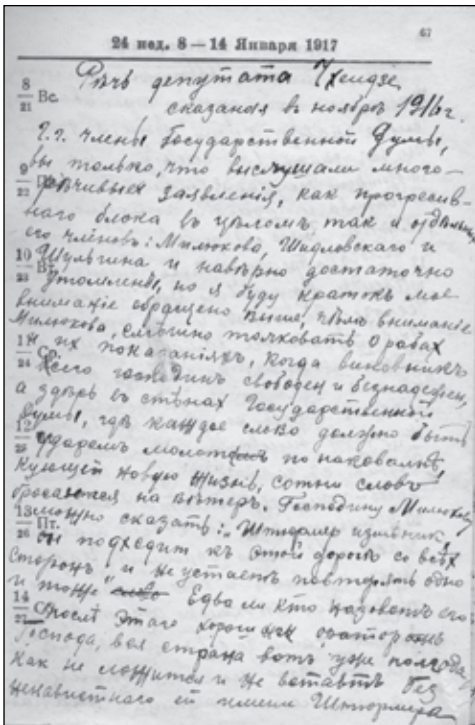 67
24 нед. 8–14 Января 1917
Рѣчь депутата Чхеидзе,
8/21 Вс. сказаная въ ноябрѣ 1916 г.
Г.г. члены Государственной Думы,
вы только, что выслушали много-
9/22 рѣчивыхъ заявленія, как прогресив-
наго блока въ цѣломъ, так и отдѣльн.
его членовъ: Милюкова, Шидловскаго и
10/23 Вт. Шульгина и навѣрно достаточно
утомлены, но я буду кратокъ мое
вниманіе обращено выше, чѣмъ вниманіе
Милюкова, смѣшно толковать о рабах
11/24 Ср. и их показаніяхъ, когда виновникъ
всего господинъ свободен и безнадежен,
а здѣсь въ стѣнах Государственной
Думы, гдѣ каждое слово должно быть
12/25 ударомъ молота по наковальнѣ,
кующей новую жизнь, сотни словъ
бросаются на вѣтеръ. Господину Милюкову
13/26 Пт. можно сказать: „Штюрмер измѣнник"
он подходит къ этой дорогѣ со всѣх
сторонъ и не устаетъ повторять одно
и тоже" Едва ли кто назоветъ его
14/27 послѣ этаго хорошимъ ораторомъ
Господа, вся страна вотъ уже полгода,
как не ложится и не встаетъ без
ненавистнаго ей имени Штюрмера